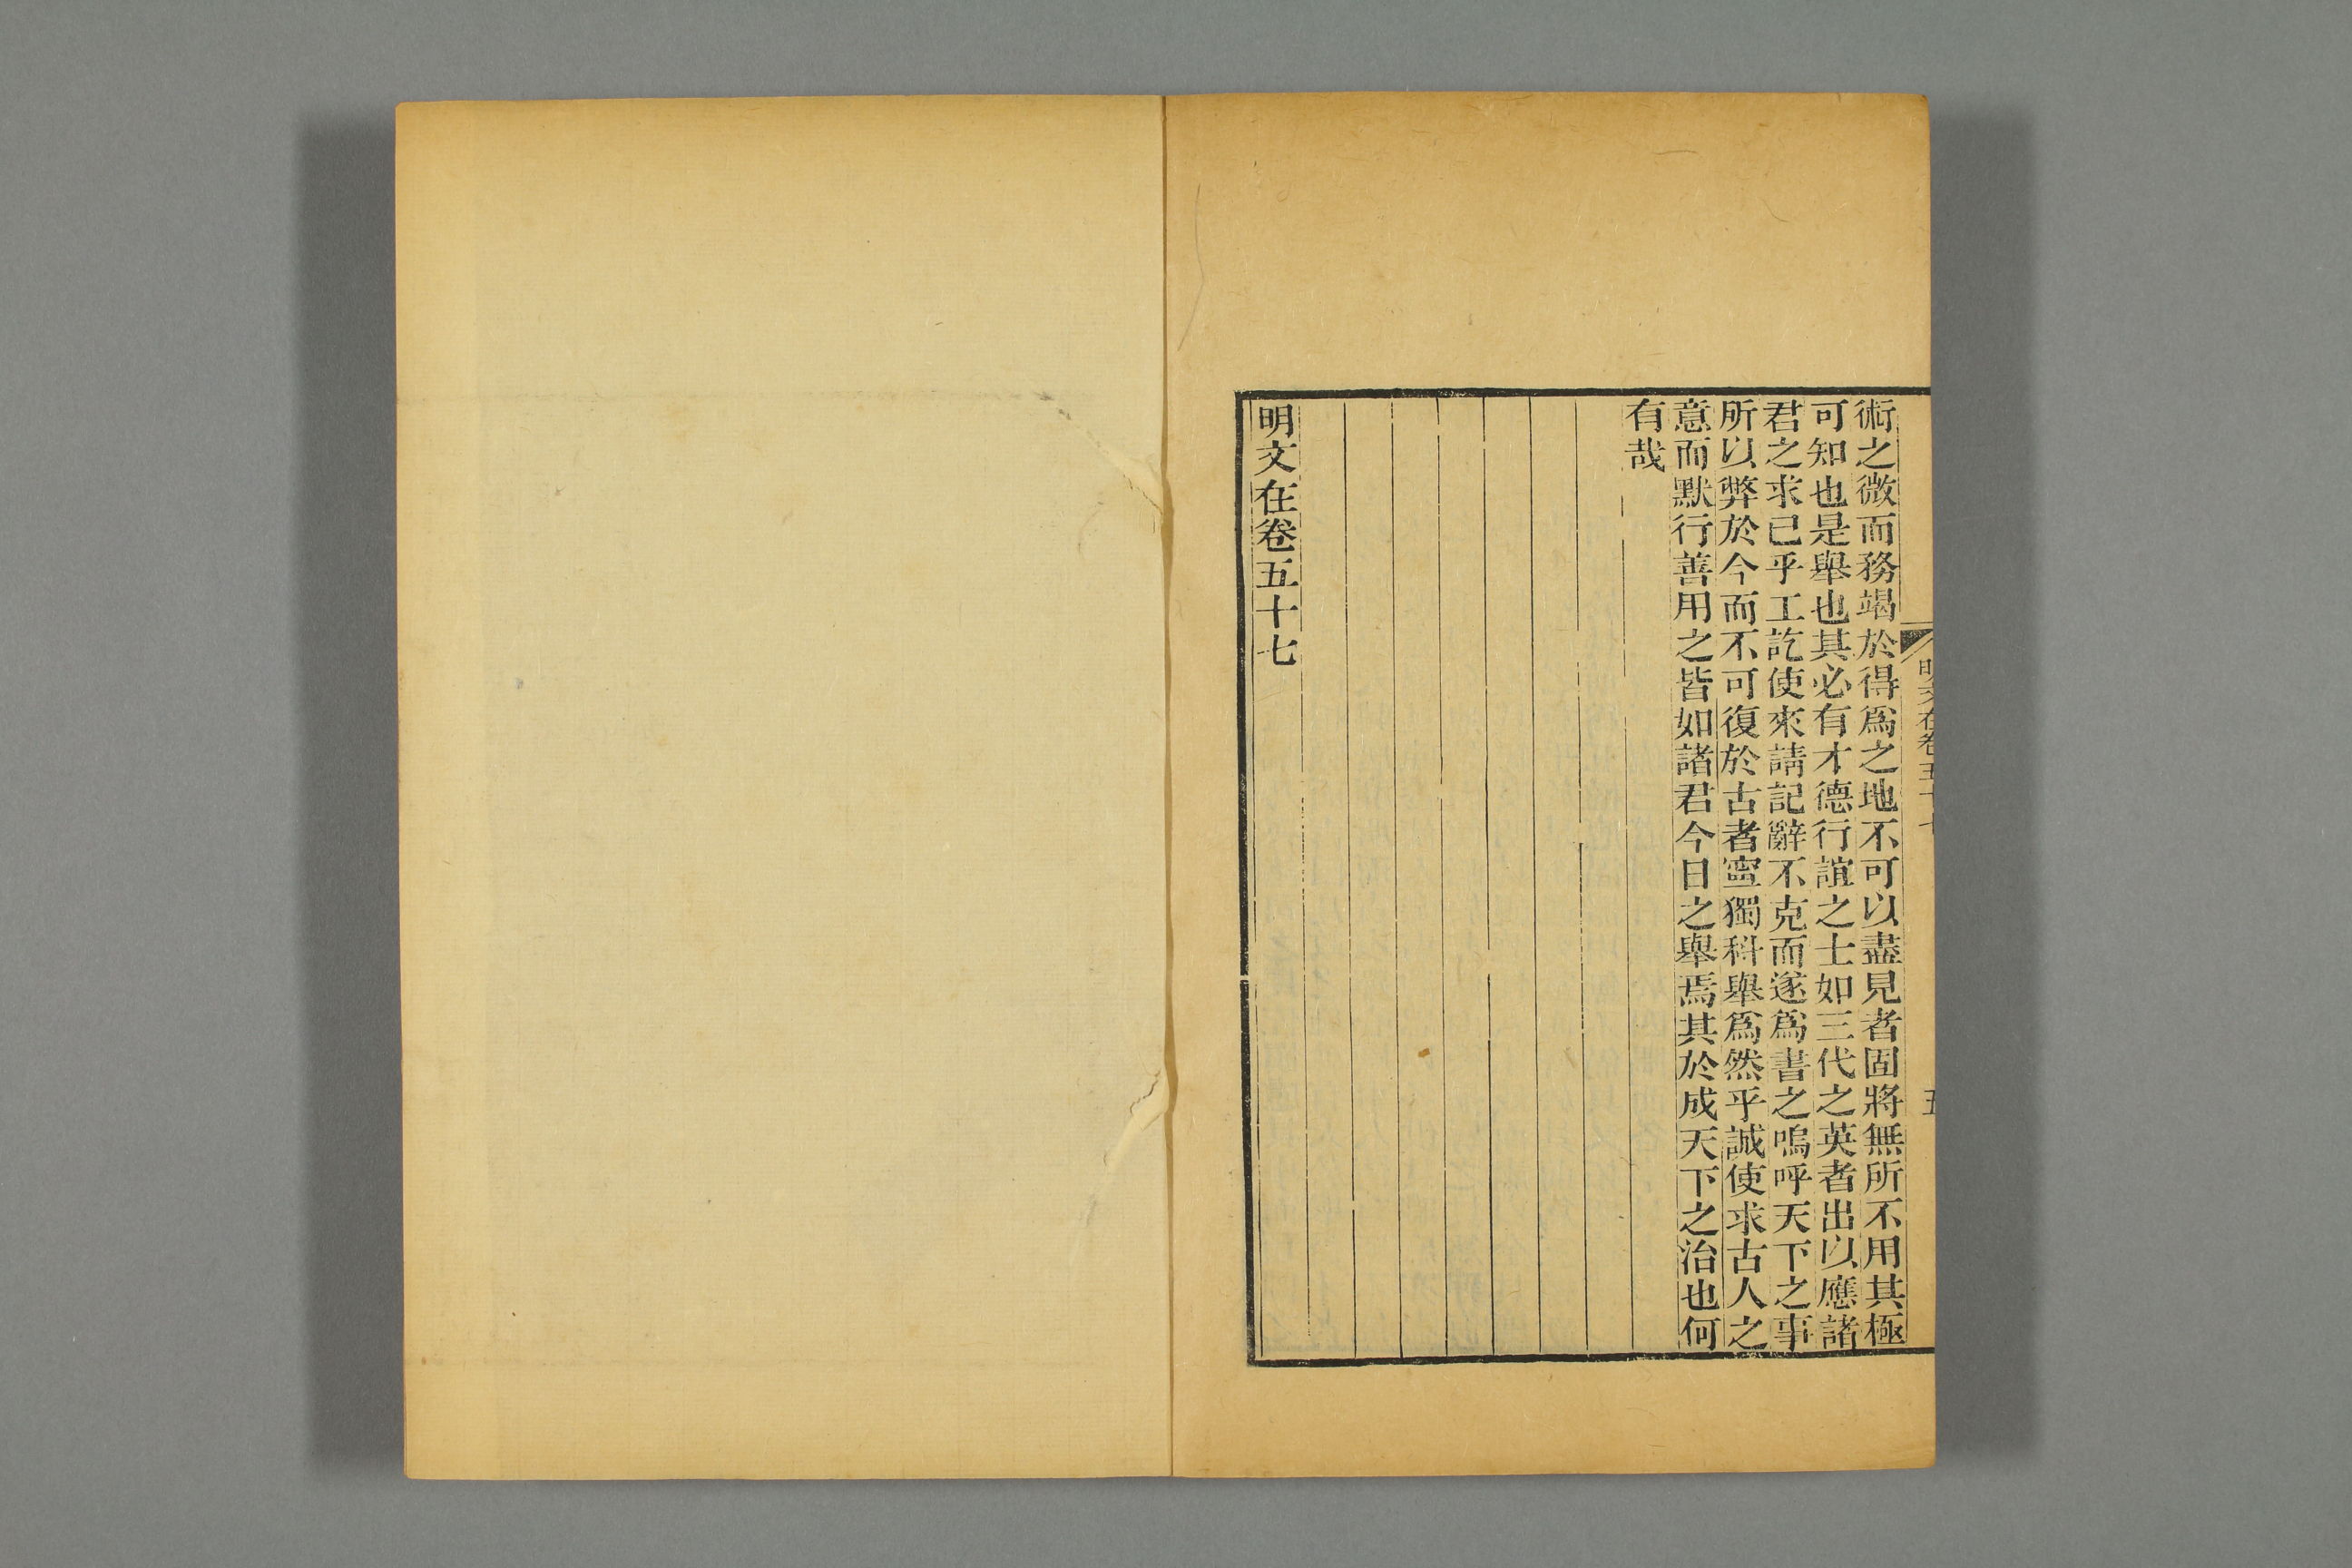 明文在卷五十七
五
術之微而務竭於得爲之地不可以盡見者固將無所不用其極
可知也是舉也其必有才德行誼之士如三代之英者出以應諸
君之求已乎工訖使來請記辭不克而遂爲書之嗚呼天下之事
所以弊於今而不可復於古者寧獨科舉爲然乎誠使求古人之
意而默行善用之皆如諸君今日之舉焉其於成天下之治也何
有哉
明文在卷五十七